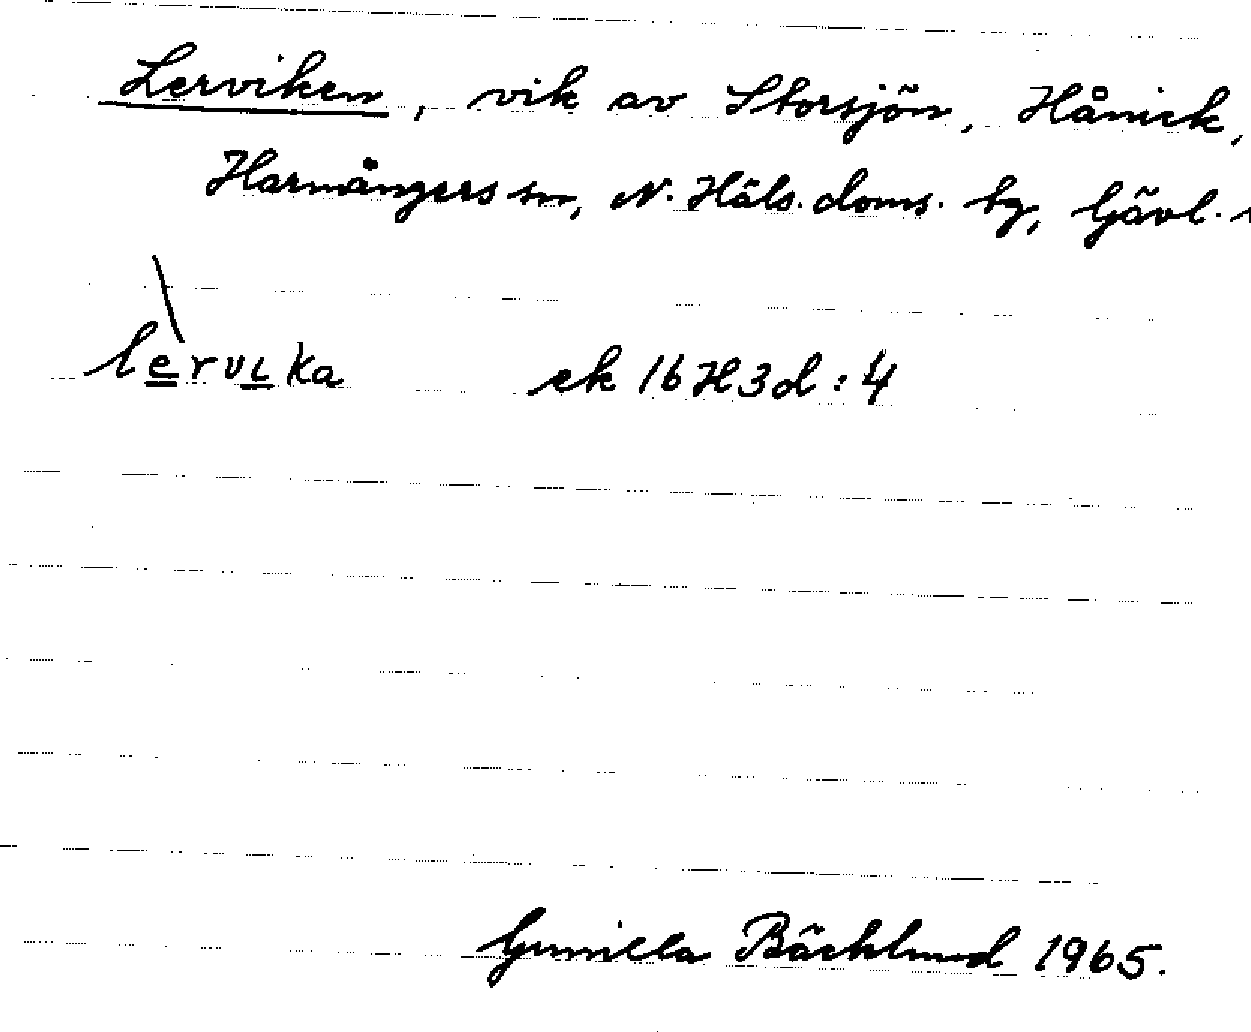 Lerviken, vik av Storsjön, Hånick,
Harmångers sn, N. Häls. doms. tg, Gävl.
lèrvıka ek 16H3d:4
Gunilla Bäcklund 1965.